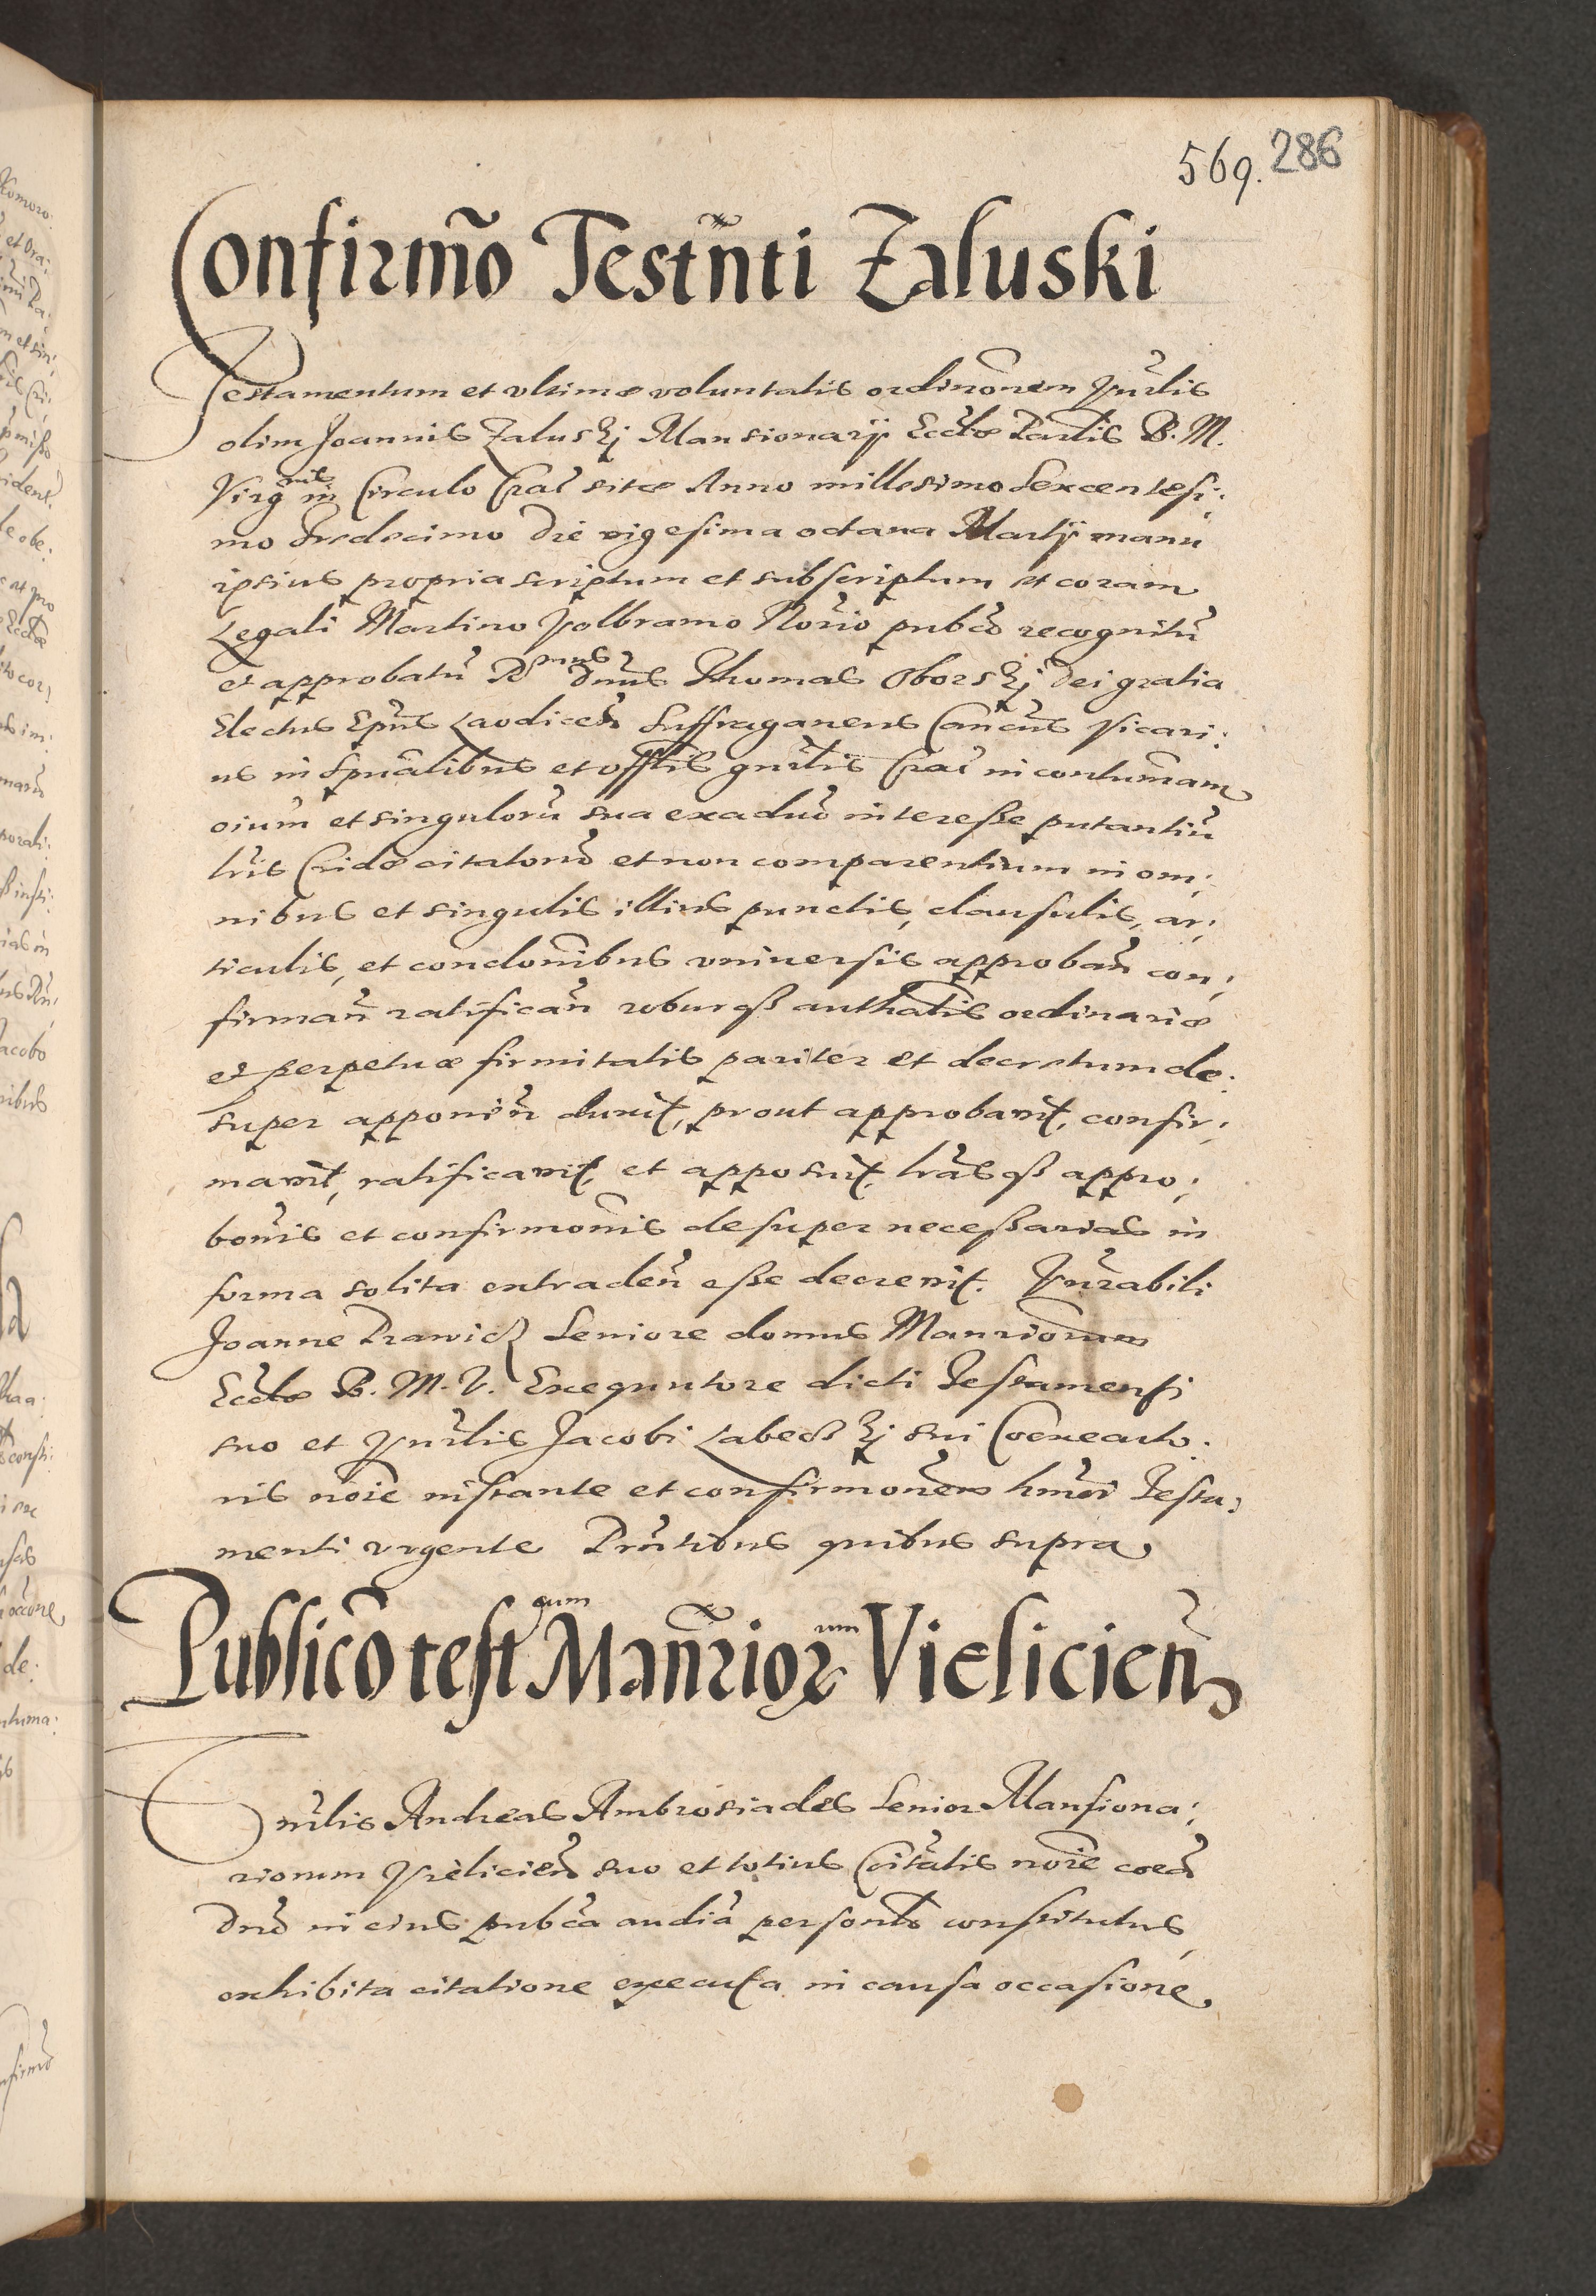 569. 286
Confirmõ Testñti Zaluski
Testamentum et ultimæ voluntatis ordinõnem Vnrlis
olim Joannis Zaluskj Mansionarij Eccłæ Parlis B. M.
Virgnis in Circulo Crac sitæ Anno millesimo Sexcentesi:
mo Tredecimo die vigesima octaua Martij manu
ipsius propria scriptum et subscriptum et coram
Legali Martino Volbramo Norio pubco recognitũ
et approbatũ Rmus Dnus Thomas Oborskj Dei gratia
Electus Epũs Laodiceñ Suffraganeus Cancus Vicari:
us in Spũalibus et offlis gnrlis Crac in contumam
oium et singulorũ sua exaduo interesse putantiũ
lris Cridæ citatorũ et non comparentium in om:
nibus et singulis illius punctis, clausulis, ar:
ticulis, et condonibus vniuersis approbañ con:
firmañ ratificañ roburqȝ authatis ordinariæ
et perpetuæ firmitatis pariter et decretum de:
super apponeñ duxit, prout approbauit, confir:
mauit, ratificauit, et apposuit, lrasqȝ appro:
bonis et confirmonis desuper necessarias in
forma solita extradeñ esse decreuit. Vnrabili
Joanne Prawick Seniore domus Manriorum
Eccłæ B. M. V. Exequutore dicti Testamenti
suo et Vnrlis Jacobi Labeckj sui Coexecuto:
ris noie instante et confirmonem hmoi Testa:
menti vrgente Prntibus quibus supra
Publicõ test cum Mañrior rum Vieliciеñ
Vnrlis Andreas Ambrosiades Senior Mansiona:
riorum Vieliciеñ suo et totius Coitatis noie coram
Dno in eius pubca audia personlr constitutus,
exhibita citatione executa in causa occasione